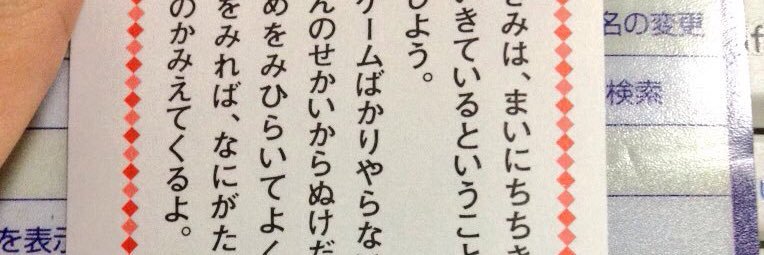 きみは、まいにちちき
いきているということ
しよう。
ゲームばかりやらな
んのせかいからぬけだ
めをみひらいてよく
をみれば、なにがた
のかみえてくるよ。
名の変更
検索
を表示